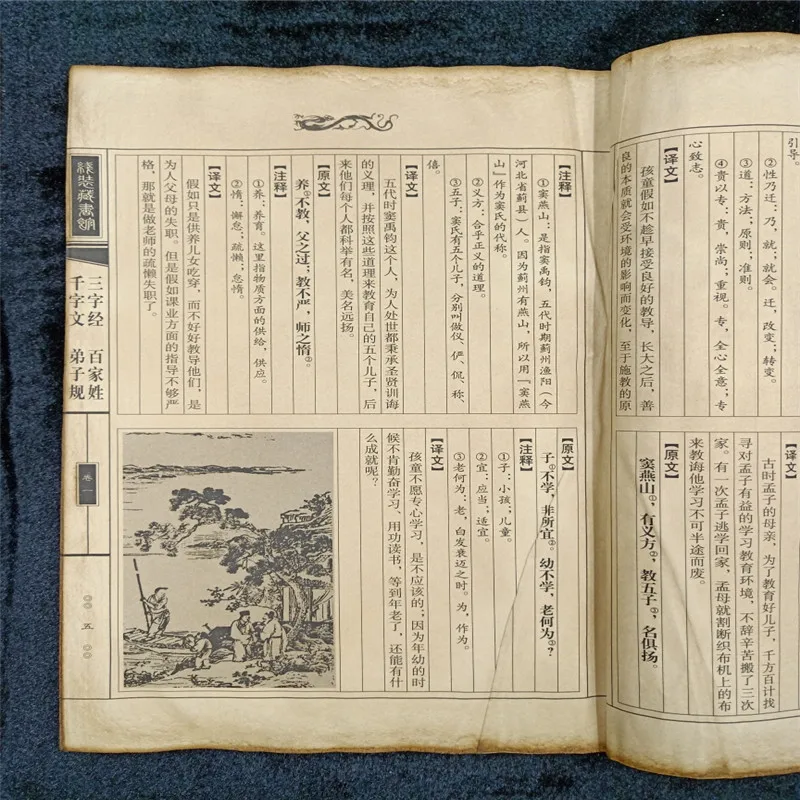 引导。
②性乃迁：乃，就；就会。迁，改变；转变。
③道：方法；原则；准则。
④贵以专：贵，崇尚；重视。专，全心全意；专
心致志。
【译文】
孩童假如不趁早接受良好的教导，长大之后，善
良的本质就会受环境的影响而变化，至于施教的原
【译文】
古时孟子的母亲，为了教育好儿子，千方百计找
寻对孟子有益的学习教育环境，不辞辛苦搬了三次
家。有一次孟子逃学回家，孟母就割断织布机上的布
来教诲他学习不可半途而废。
【原文】
窦燕山①，有义方②，教五子③，名俱扬。
【注释】
①窦燕山：是指窦禹钧，五代时期蓟州渔阳（今
河北省蓟县）人。因为蓟州有燕山，所以用『窦燕
山』作为窦氏的代称。
②义方：合乎正义的道理。
③五子，窦氏有五个儿子，分别叫做仪、俨、侃、称、
僖。
【译文】
五代时窦禹钧这个人，为人处世都秉承圣贤训诲
的义理，并按照这些道理来教育自己的五个儿子，后
来他们每个人都科举有名，美名远扬。
【原文】
养①不教，父之过；教不严，师之惰②。
【注释】
①养：养育。这里指物质方面的供给，供应。
②惰：懈怠；疏懒；怠惰。
【译文】
假如只是供养儿女吃穿，而不好好教导他们，是
为人父母的失职。但是假如课业方面的指导不够严
格，那就是做老师的疏懒失职了。
【原文】
子①不学，非所宜②。幼不学，老何为③？
【注释】
①子：小孩；儿童。
②宜：应当；适宜。
③老何为：老，白发衰迈之时。为，作为。
【译文】
孩童不愿专心学习，是不应该的；因为年幼的时
候不肯勤奋学习、用功读书，等到年老了，还能有什
么成就呢？
线装藏书馆
三字经 百家姓
千字文 弟子规
卷一
〇〇五〇〇